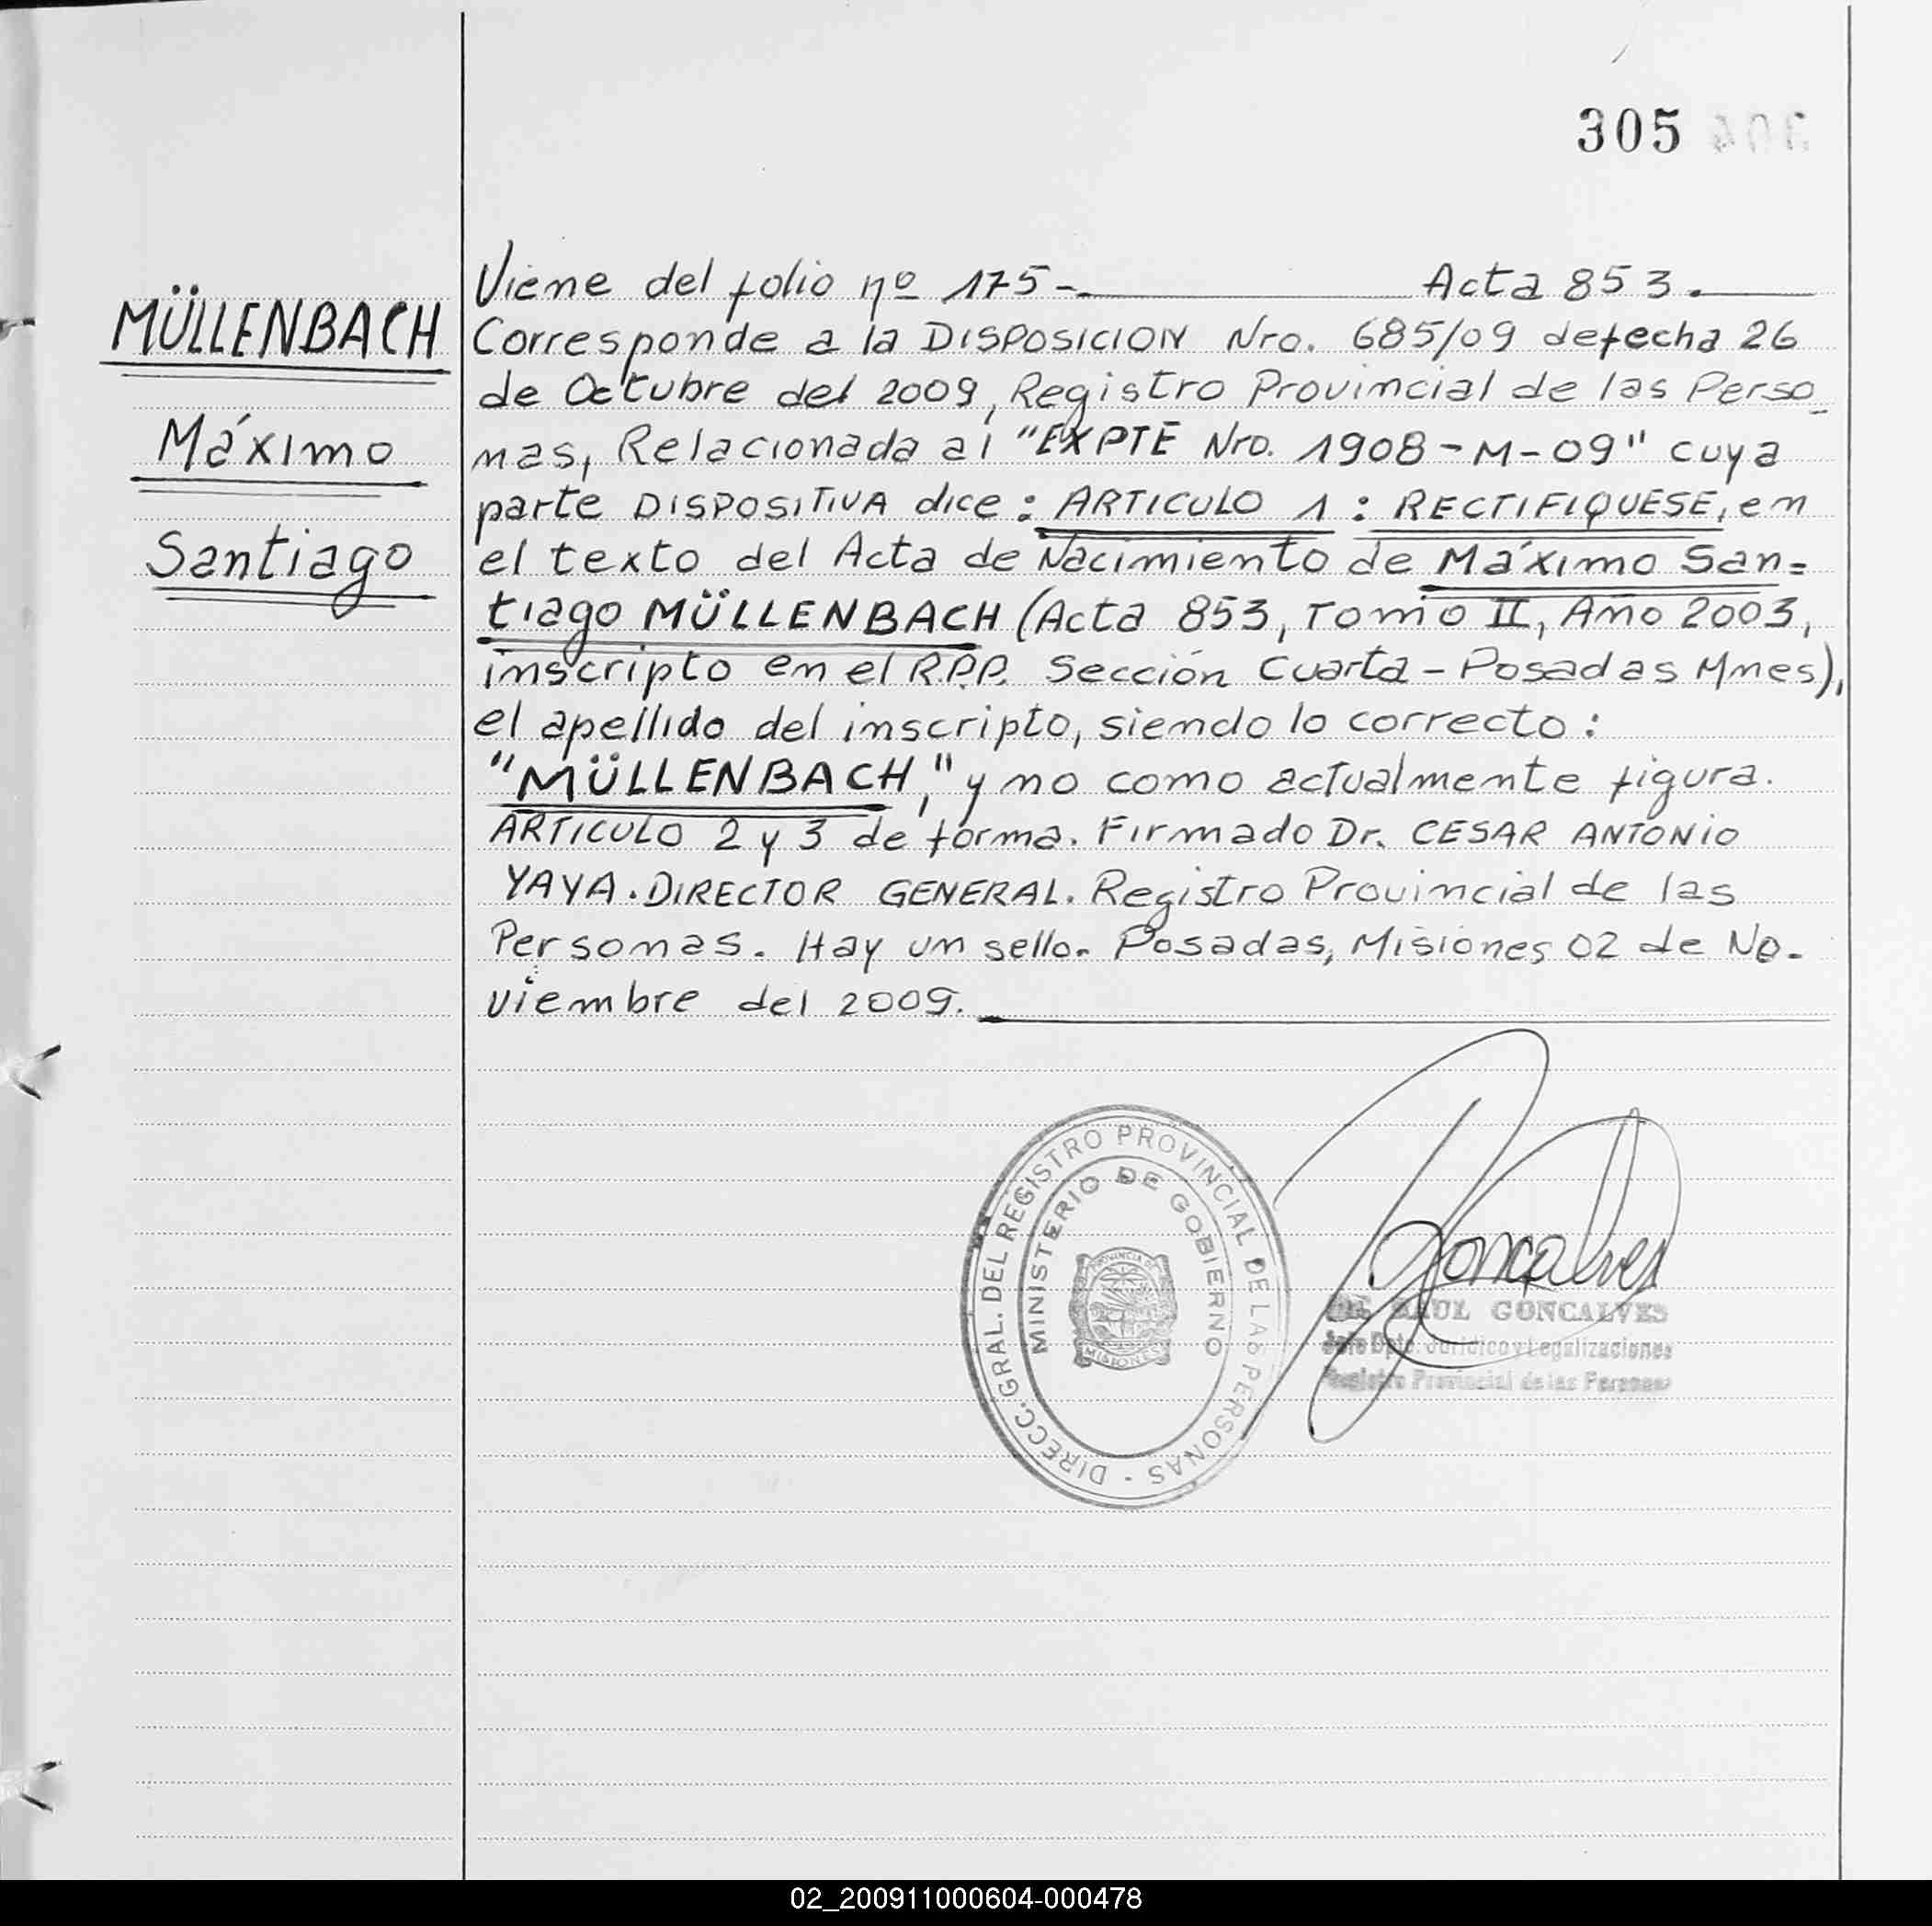 305
MÜLLENBACH
Máximo
Santiago
Viene del folio nº 175-. Acta 853.
Corresponde a la DISPOSICION Nro. 685/09 de fecha 26
de Octubre del 2009, Registro Provincial de las Perso_
nas, Relacionada al "EXPTE Nro. 1908-M-09" cuya
parte DISPOSITIVA dice: ARTICULO 1: RECTIFIQUESE, en
el texto del Acta de Nacimiento de Máximo San=
tiago MÜLLENBACH (Acta 853, Tomo II, Año 2003,
inscripto en el R.P.P. Sección Cuarta - Posadas Mnes),
el apellido del inscripto, siendo lo correcto:
"MÜLLENBACH," y no como actualmente figura.
ARTICULO 2 y 3 de forma. Firmado Dr. CESAR ANTONIO
YAYA. DIRECTOR GENERAL. Registro Provincial de las
Personas. Hay un sello. Posadas, Misiones 02 de No-
viembre del 2009.
DIRECC. GRAL. DEL REGISTRO PROVINCIAL DE LAS PERSONAS -
MINISTERIO DE GOBIERNO
PROVINCIA DE
MISIONES
Goncalves
RAUL GONCALVES
Jefe Dpto. Jurídico y Legalizaciones
Registro Provincial de las Personas
02_200911000604-000478